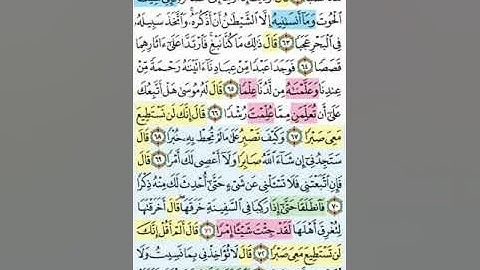 الْحُوتَ وَمَا أَنسَىٰنِيهُ إِلَّا الشَّيْطَٰنُ أَنْ أَذْكُرَهُۥ وَاتَّخَذَ سَبِيلَهُۥ
فِى الْبَحْرِ عَجَبًا ٦٣ قَالَ ذَٰلِكَ مَا كُنَّا نَبْغِ فَارْتَدَّا عَلَىٰٓ ءَاثَارِهِمَا
قَصَصًا ٦٤ فَوَجَدَا عَبْدًا مِّنْ عِبَادِنَآ ءَاتَيْنَٰهُ رَحْمَةً مِّنْ
عِندِنَا وَعَلَّمْنَٰهُ مِن لَّدُنَّا عِلْمًا ٦٥ قَالَ لَهُۥ مُوسَىٰ هَلْ أَتَّبِعُكَ
عَلَىٰٓ أَن تُعَلِّمَنِ مِمَّا عُلِّمْتَ رُشْدًا ٦٦ قَالَ إِنَّكَ لَن تَسْتَطِيعَ
مَعِىَ صَبْرًا ٦٧ وَكَيْفَ تَصْبِرُ عَلَىٰ مَا لَمْ تُحِطْ بِهِۦ خُبْرًا ٦٨ قَالَ
سَتَجِدُنِىٓ إِن شَآءَ اللَّهُ صَابِرًا وَلَآ أَعْصِى لَكَ أَمْرًا ٦٩ قَالَ
فَإِنِ اتَّبَعْتَنِى فَلَا تَسْـَٔلْنِى عَن شَىْءٍ حَتَّىٰٓ أُحْدِثَ لَكَ مِنْهُ ذِكْرًا
٧٠ فَانطَلَقَا حَتَّىٰٓ إِذَا رَكِبَا فِى السَّفِينَةِ خَرَقَهَا قَالَ أَخَرَقْتَهَا
لِتُغْرِقَ أَهْلَهَا لَقَدْ جِئْتَ شَيْـًٔا إِمْرًا ٧١ قَالَ أَلَمْ أَقُلْ إِنَّكَ
لَن تَسْتَطِيعَ مَعِىَ صَبْرًا ٧٢ قَالَ لَا تُؤَاخِذْنِى بِمَا نَسِيتُ وَلَا